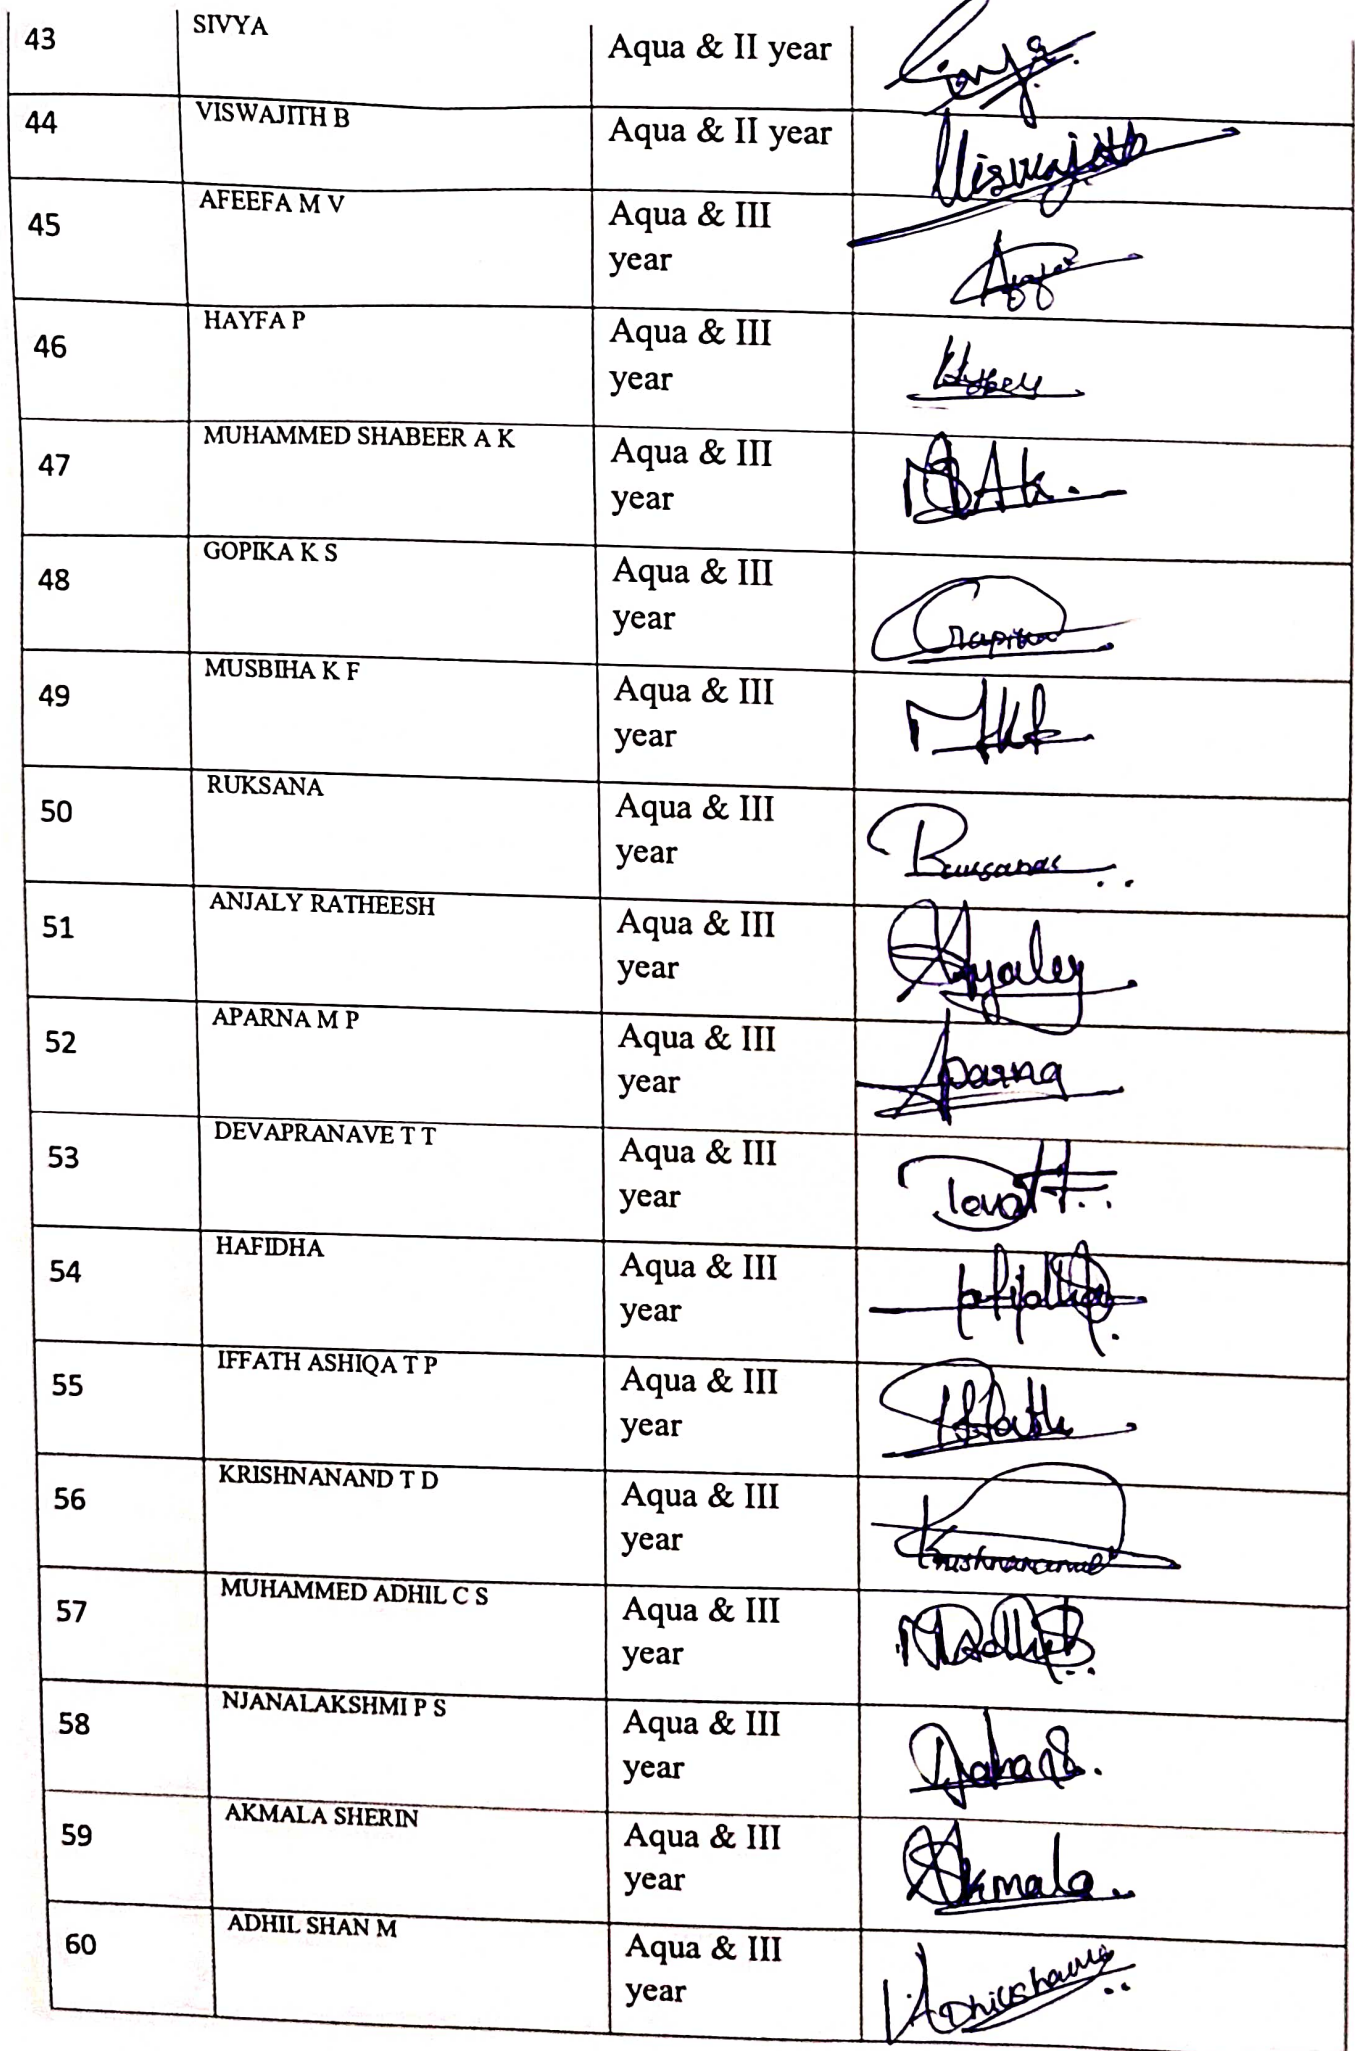 43 SIVYA Aqua & II year
44 VISWAJITH B Aqua & II year Viswajith
45 AFEEFA M V Aqua & III
year
46 HAYFA P Aqua & III
year
47 MUHAMMED SHABEER A K Aqua & III
year
48 GOPIKA K S Aqua & III
year
49 MUSBIHA K F Aqua & III
year
50 RUKSANA Aqua & III
year
51 ANJALY RATHEESH Aqua & III
year
52 APARNA M P Aqua & III
year Aparna
53 DEVAPRANAVE T T Aqua & III
year
54 HAFIDHA Aqua & III
year
55 IFFATH ASHIQA T P Aqua & III
year Iffath
56 KRISHNANAND T D Aqua & III
year Krishnanand
57 MUHAMMED ADHIL C S Aqua & III
year
58 NJANALAKSHMI P S Aqua & III
year
59 AKMALA SHERIN Aqua & III
year Akmala
60 ADHIL SHAN M Aqua & III
year